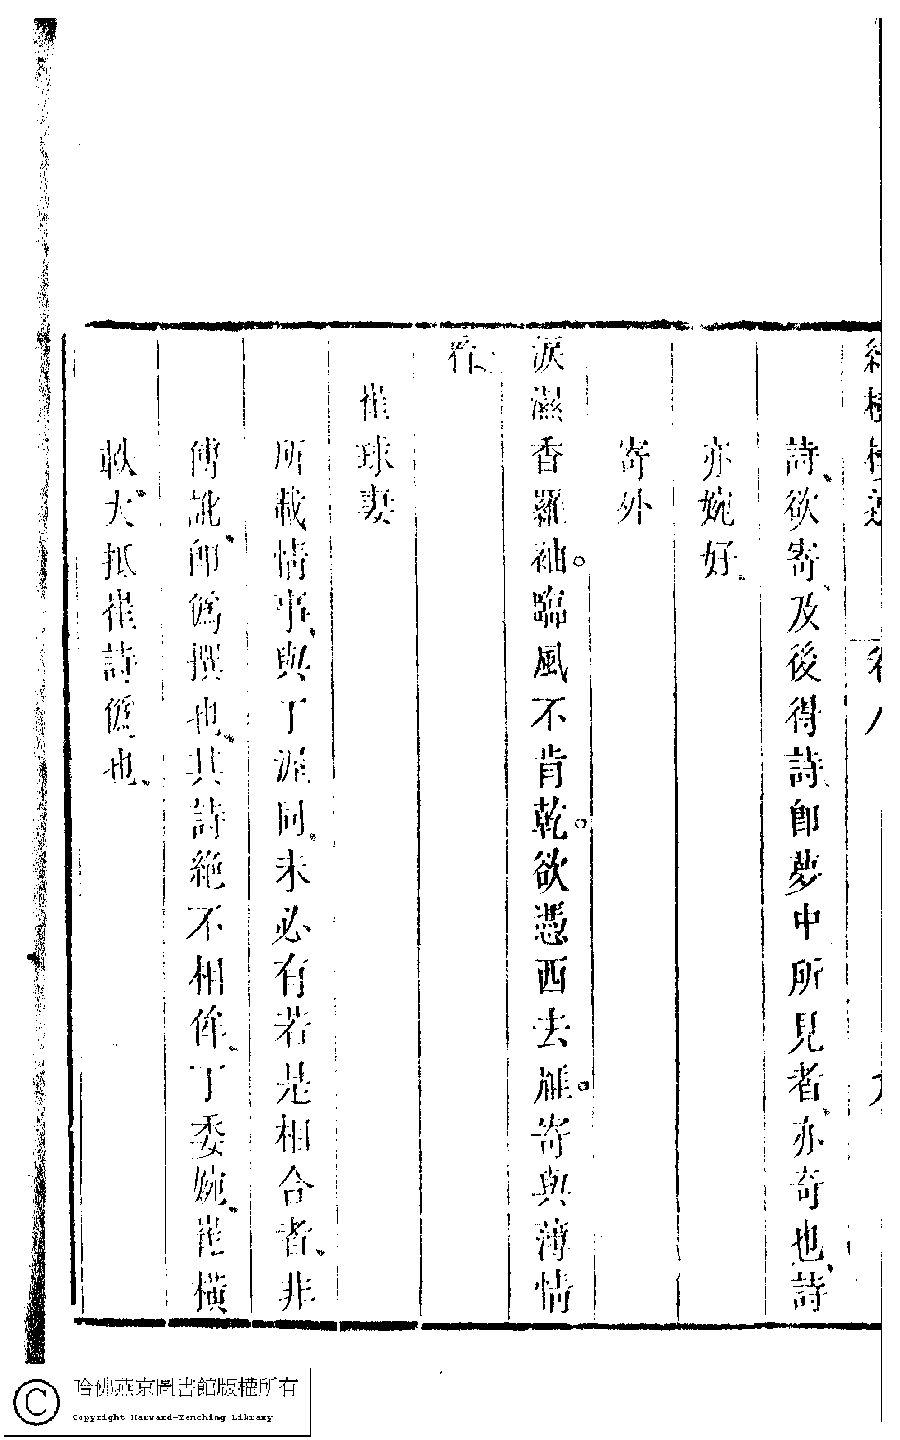 卷八
九
詩欲寄及後得詩即夢中所見者亦奇也詩
亦婉好
寄外
淚濕香羅袖臨風不肯乾欲憑西去雁寄與薄情
看
崔球妻
所載情事與丁渥同未必有若是相合者非
傳訛即僞撰也其詩絶不相侔丁委婉崔橫
軼大抵崔詩僞也
哈佛燕京圖書館版權所有
Copyright Harvard-Yenching Library